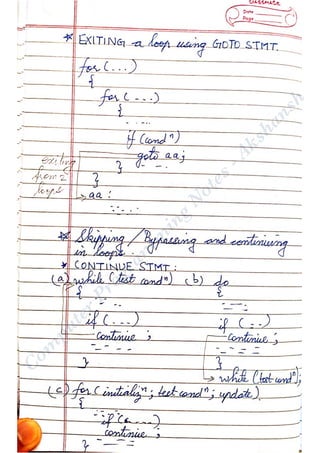 classmate
Date
Page
* EXITING a loop using GOTO STMT.
for (...)
{
for (- - -)
{
if (condⁿ)
goto aa;
}
exiting
from 2
loops
}
aa :
* Skipping / Bypassing and continuing
in loops
* CONTINUE STMT :
(a) while (test condⁿ) (b) do
{ {
if (...) if (...)
continue ; continue ;
} }
while (test condⁿ);
(c) for (initializⁿ ; test condⁿ ; update)
{
if (......)
continue ;
}
Computer Programming Notes - Akshansh